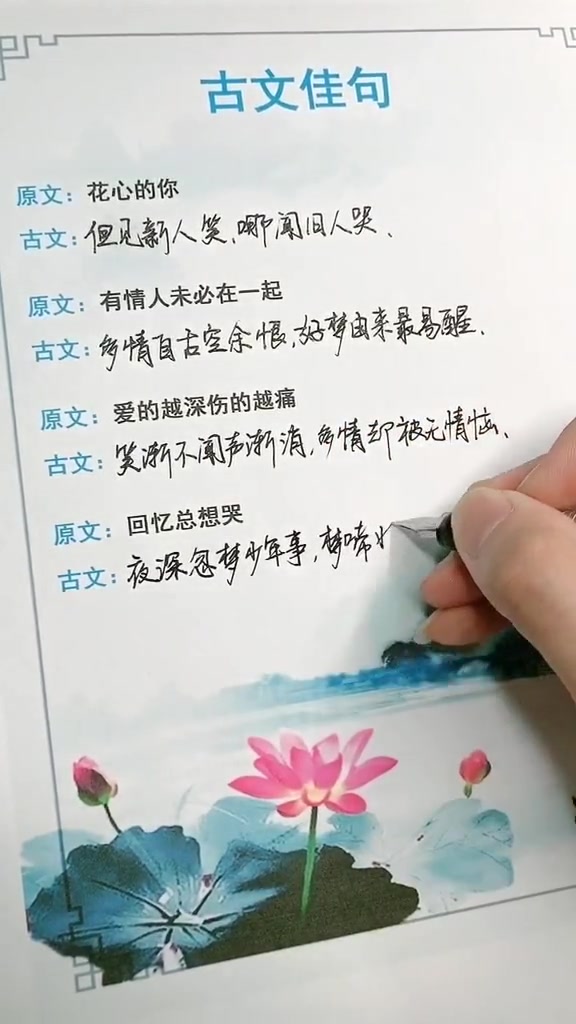 古文佳句
原文：花心的你
古文：但见新人笑、哪闻旧人哭、
原文：有情人未必在一起
古文：多情自古空余恨，好梦由来最易醒、
原文：爱的越深伤的越痛
古文：笑渐不闻声渐消，多情却被无情恼、
原文：回忆总想哭
古文：夜深忽梦少年事，梦啼